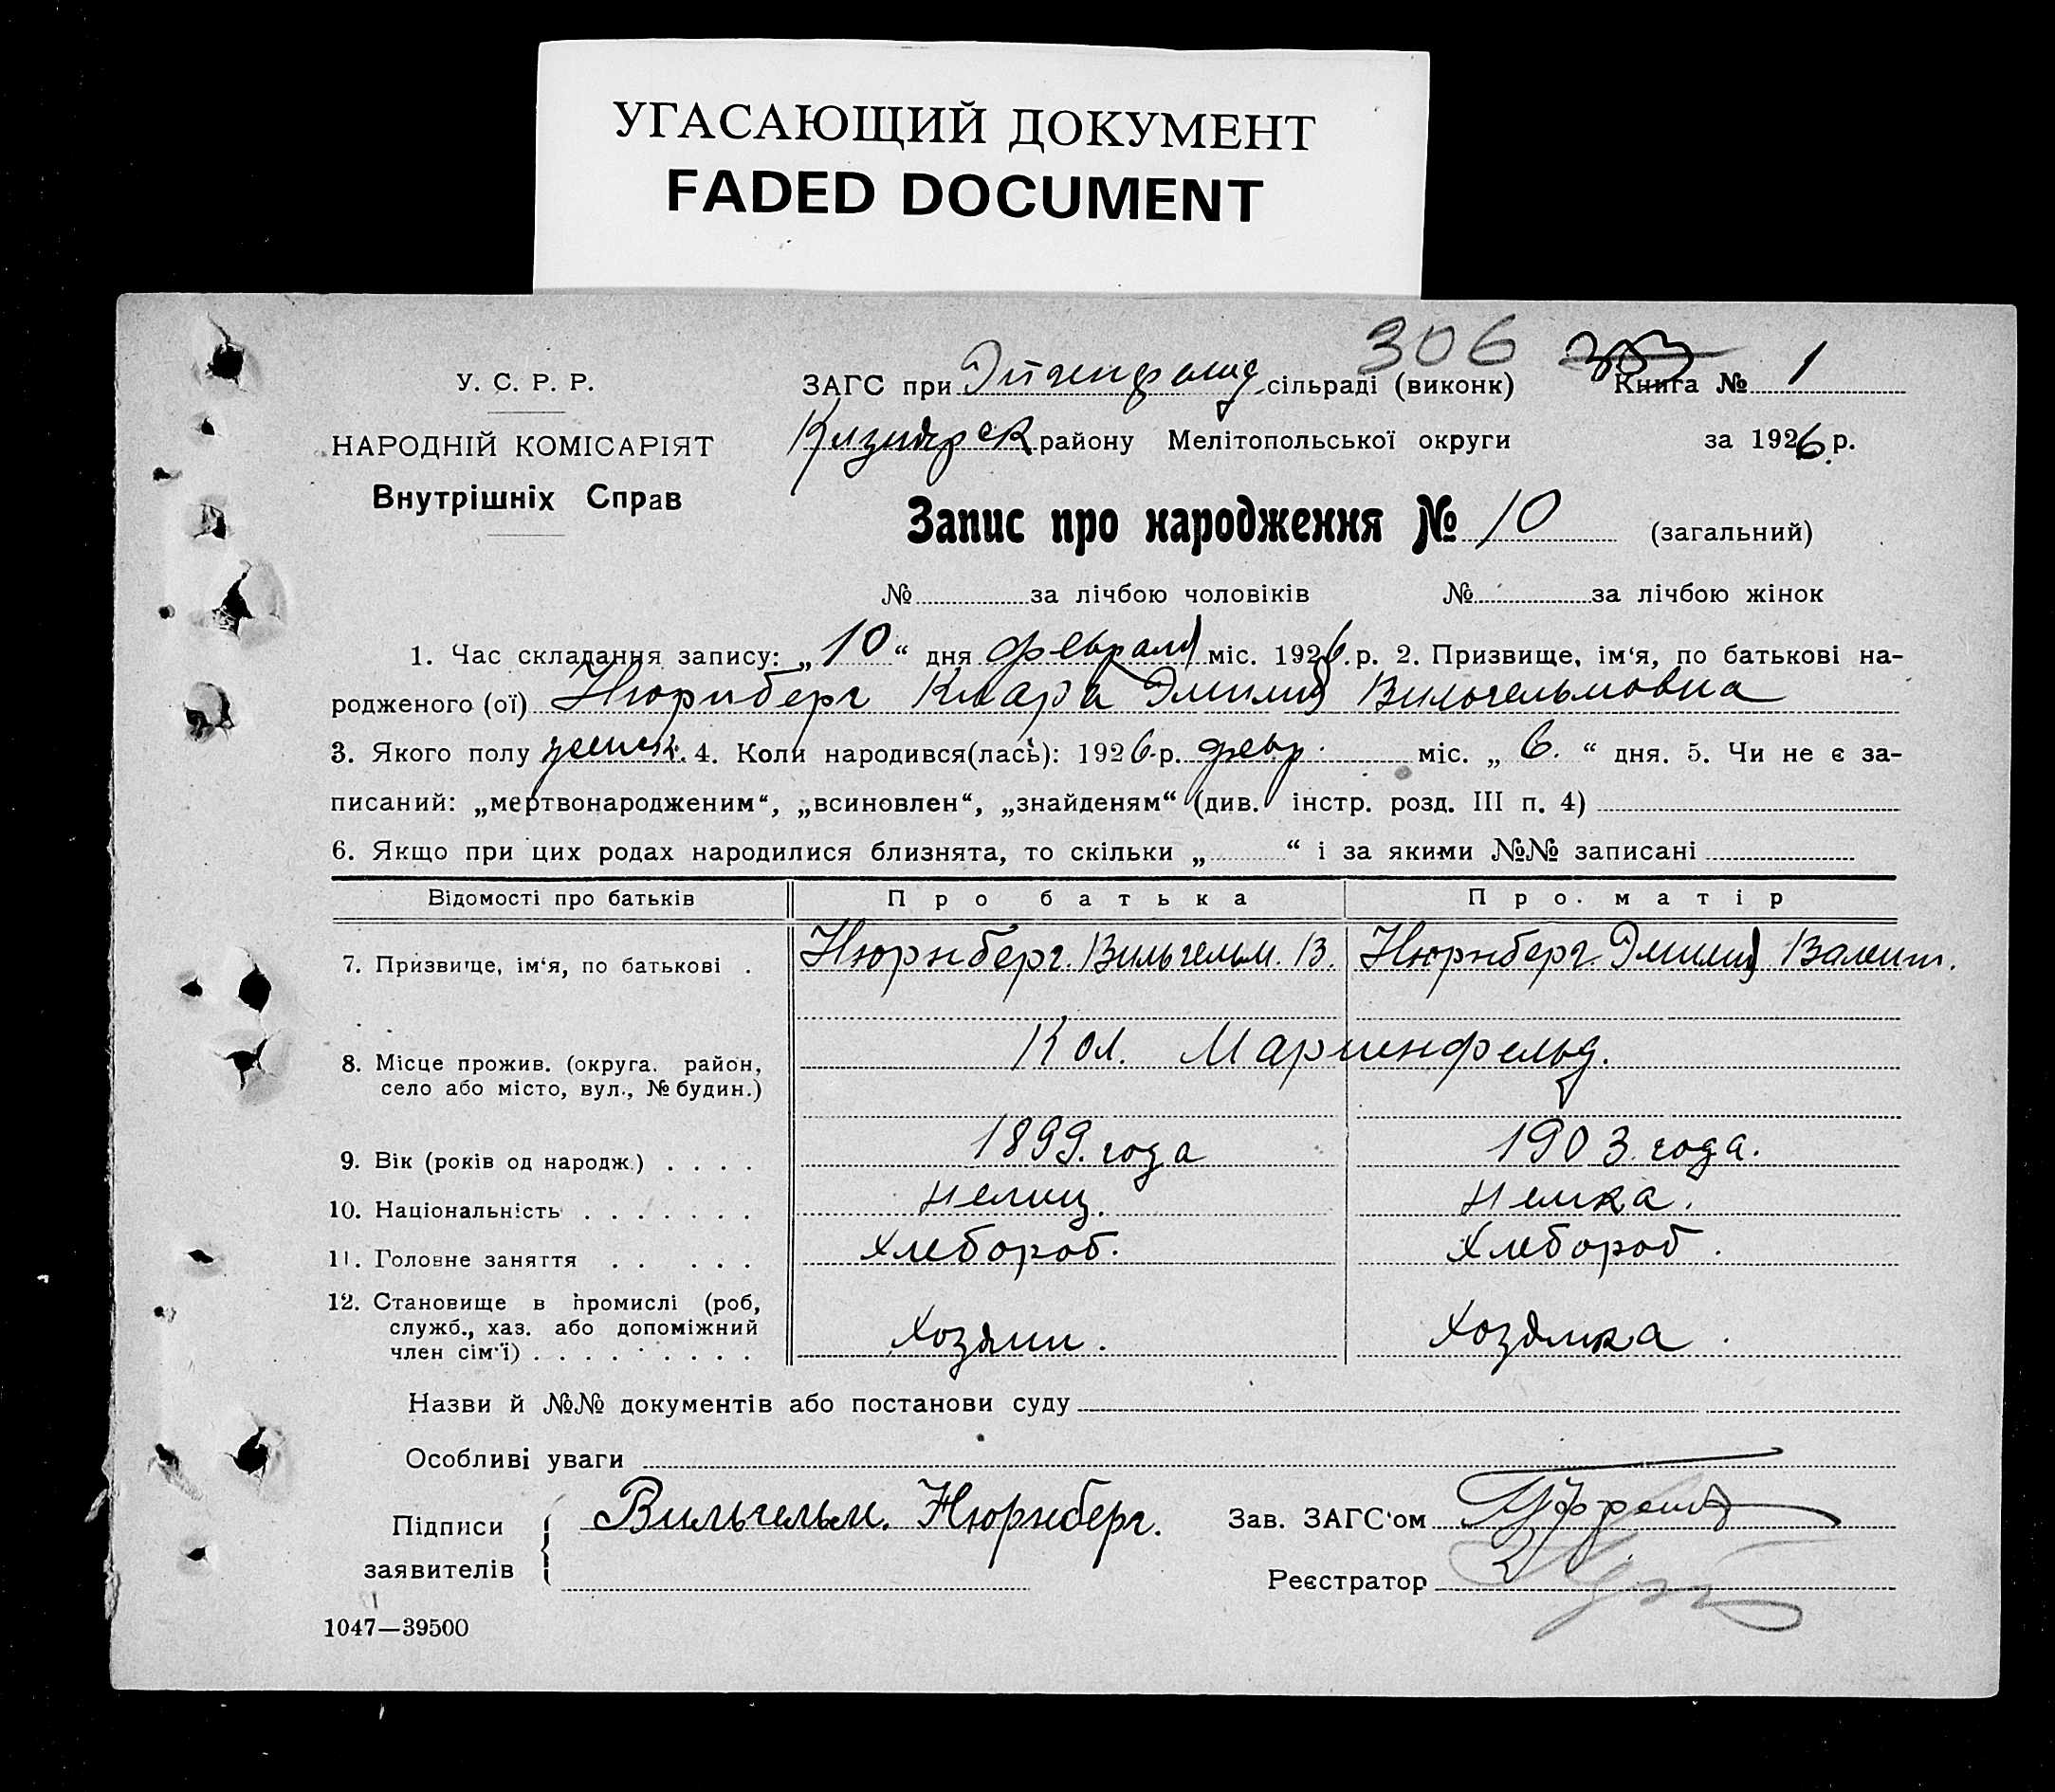 УГАСАЮЩИЙ ДОКУМЕНТ
FADED DOCUMENT
306
У. С. Р. Р.
ЗАГС при Эйгенфельд сільраді (виконк) Книга № 1
НАРОДНІЙ КОМІСАРІЯТ
району Мелітопольської округи за 1926 р.
Внутрішніх Справ
Запис про народження № 10 (загальний)
№ за лічбою чоловіків № за лічбою жінок
1. Час складання запису: „10“ дня февраля міс. 1926 р. 2. Призвище, ім‘я, по батькові на-
родженого (ої) Нюрнберг Клара Эмилия Вильгельмовна
3. Якого полу женск. 4. Коли народився(лась): 1926 р. февр. міс. „ 6. “ дня. 5. Чи не є за-
писаний: „мертвонародженим“, „всиновлен“, „знайденям“ (див. інстр. розд. III п. 4)
6. Якщо при цих родах народилися близнята, то скільки „ “ і за якими №№ записані
Відомості про батьків Про батька Про матір
7. Призвище, ім‘я, по батькові . Нюрнберг. Вильгельм. В. Нюрнберг Эмилия Валент.
8. Місце прожив. (округа, район, Кол. Мариенфельд.
село або місто, вул., № будин.)
9. Вік (років од народж.) . . . . 1899. года 1903 года.
10. Національність . . . . . . . немец. немка.
11. Головне заняття . . . . . Хлебороб. Хлебороб.
12. Становище в промислі (роб,
служб., хаз. або допоміжний Хозяин. Хозяйка.
член сім‘ї) . . . . . . . . .
Назви й №№ документів або постанови суду
Особливі уваги
Підписи Вильгельм. Нюрнберг. Зав. ЗАГС‘ом
заявителів Реєстратор
1047—39500